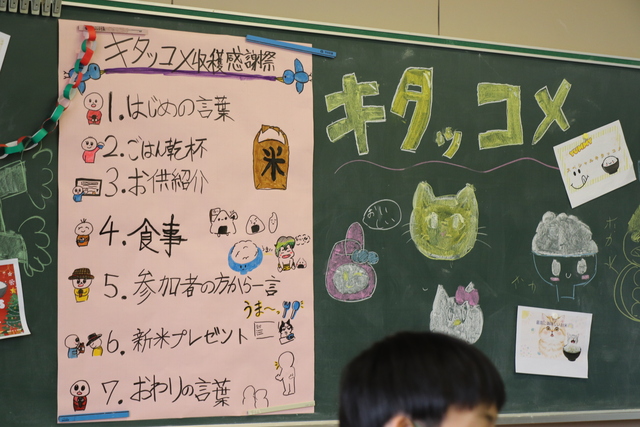 キタッコメ収穫感謝祭
1. はじめの言葉
2. ごはん乾杯
3. お供紹介
4. 食事
5. 参加者の方から一言
6. 新米プレゼント
7. おわりの言葉
米
うま〜い
キタッコメ
おいしい